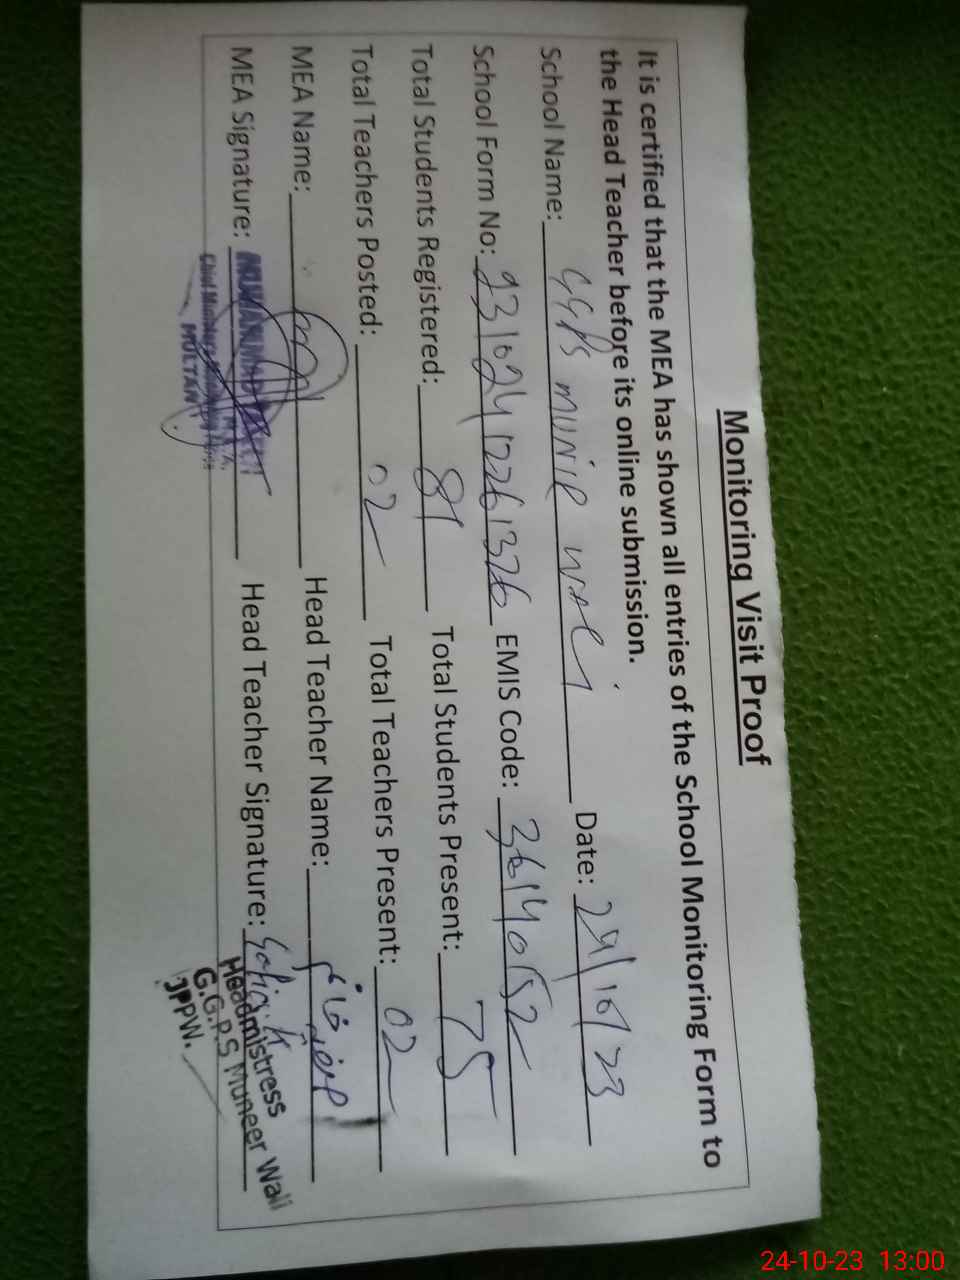 Monitoring Visit Proof
It is certified that the MEA has shown all entries of the School Monitoring Form to
the Head Teacher before its online submission.
School Name: GGPS MUNIR WALI Date: 24/10/23
School Form No: 23102412261326 EMIS Code: 36140152
Total Students Registered: 81 Total Students Present: 75
Total Teachers Posted: 02 Total Teachers Present: 02
MEA Name: Head Teacher Name:
MEA Signature: Head Teacher Signature:
MULTAN
Headmistress
G.G.P.S Muneer Wali
JPPW.
24-10-23 13:00